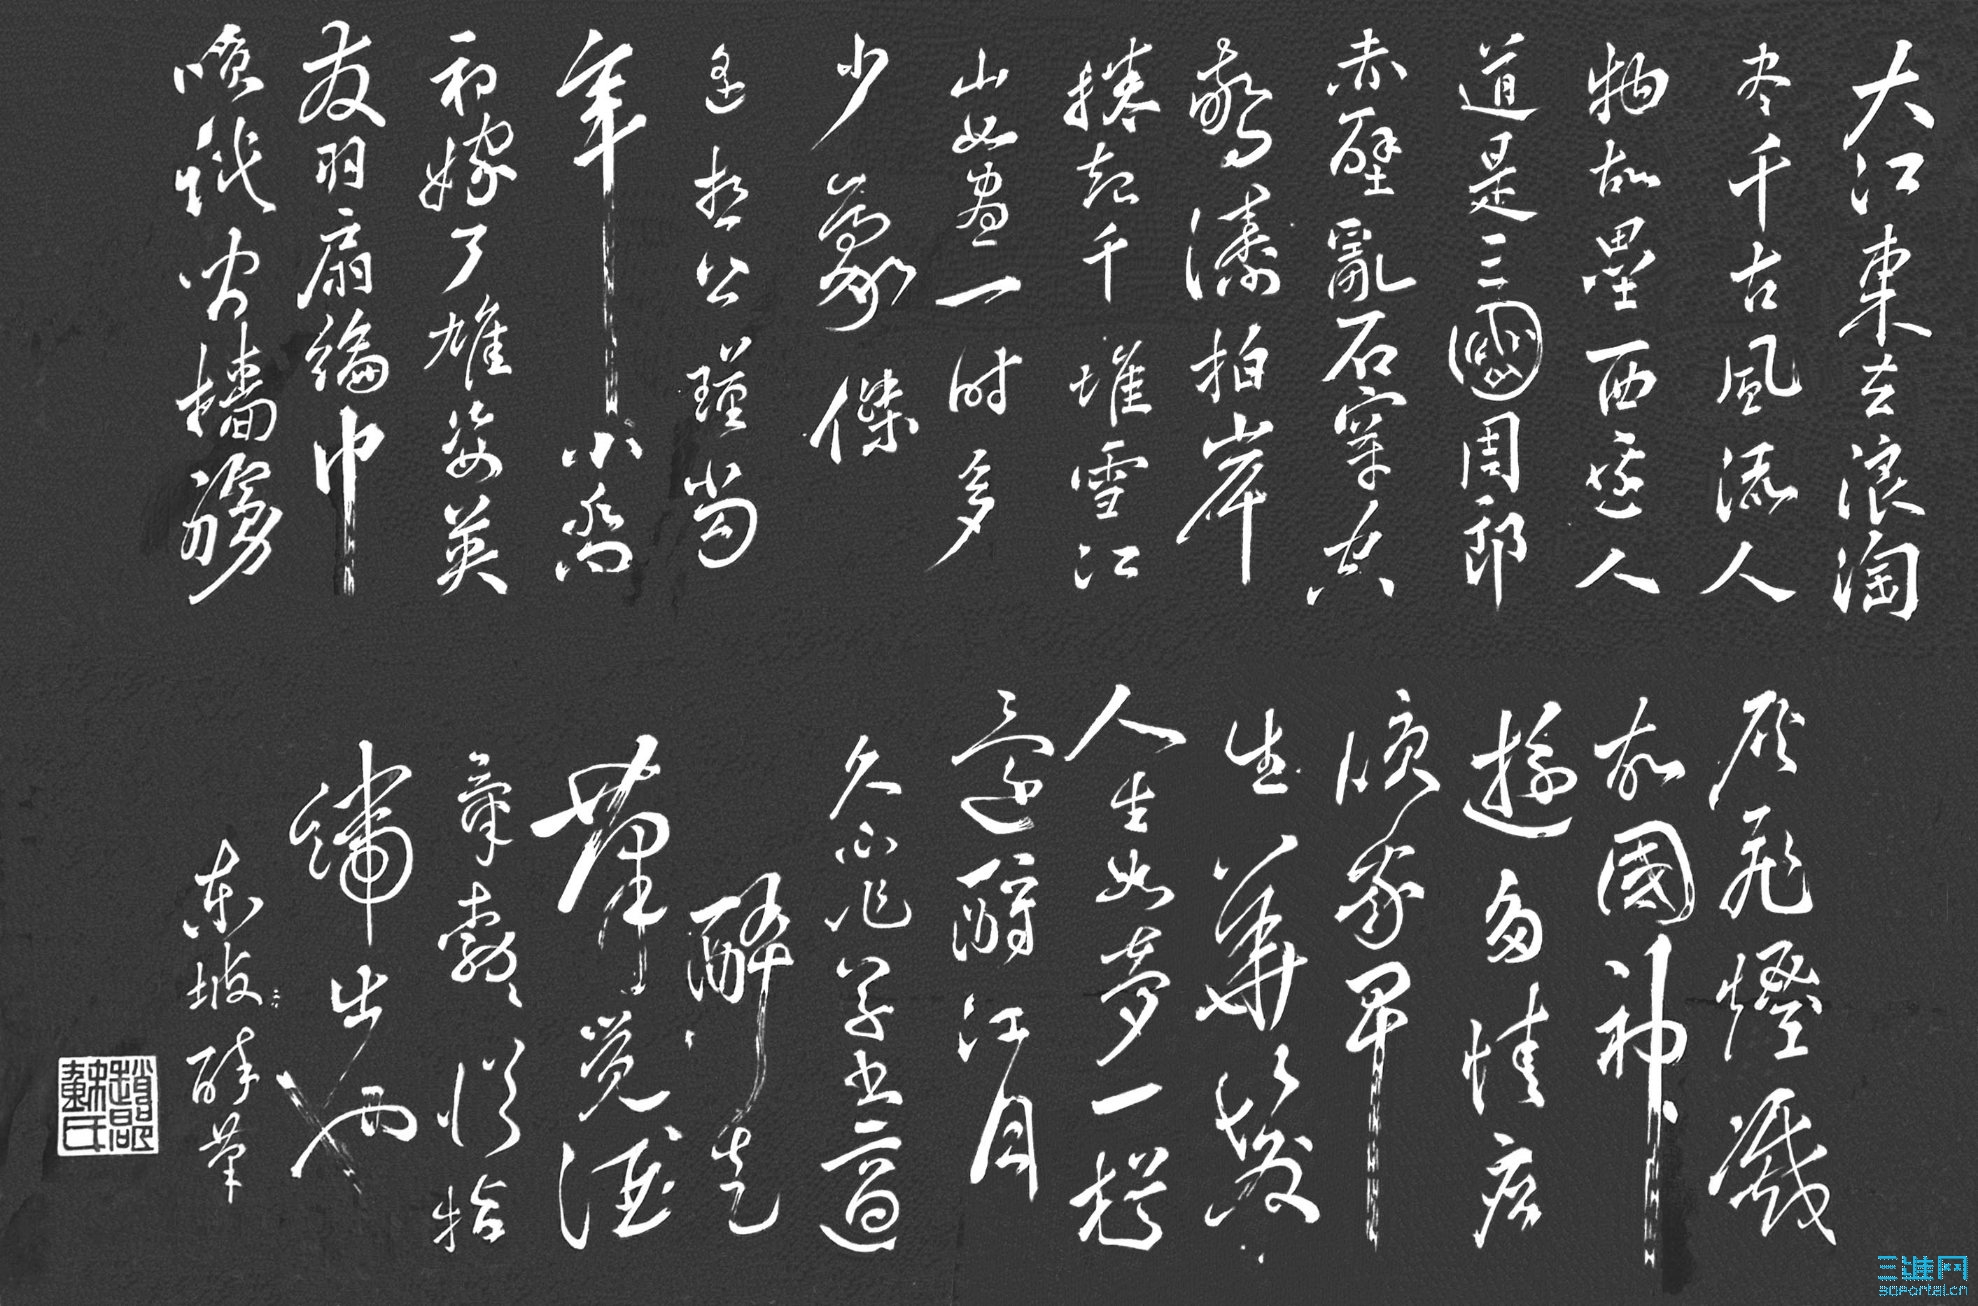 大江東去浪淘
尽千古風流人
物故壘西邊人
道是三國周郎
赤壁亂石穿空
驚濤拍岸
捲起千堆雪江
山如畫一时多
少豪傑
遙想公瑾當
年小喬
初嫁了雄姿英
发羽扇綸巾
咲談間檣艣
灰飛煙滅
故國神
遊多情應
咲我早
生華髮
人生如夢一樽
還酹江月
久不作草書適
醉走
筆覺酒
氣勃勃從指
端出也
東坡醉筆
趙郡蘇氏
三维网
3dportal.cn